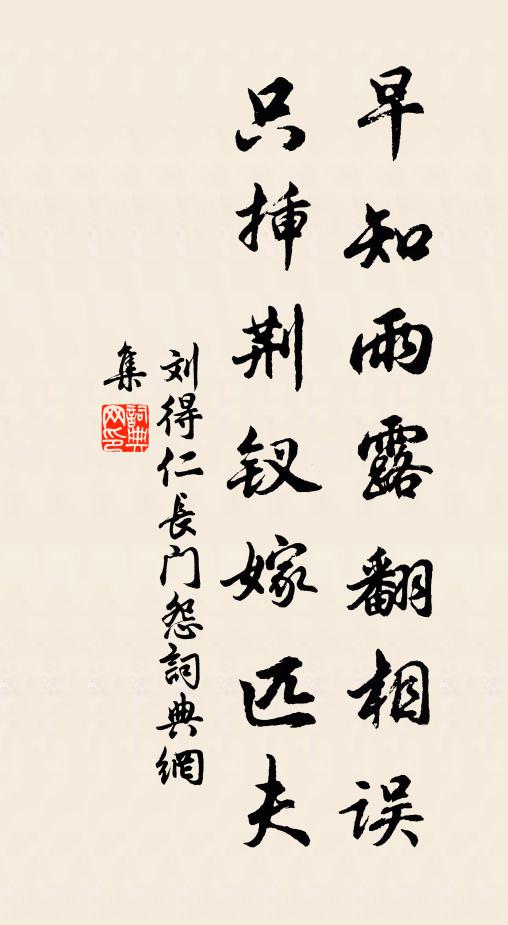 早知雨露翻相误
只插荆钗嫁匹夫
刘得仁長门怨詞典網
集
詞典网印